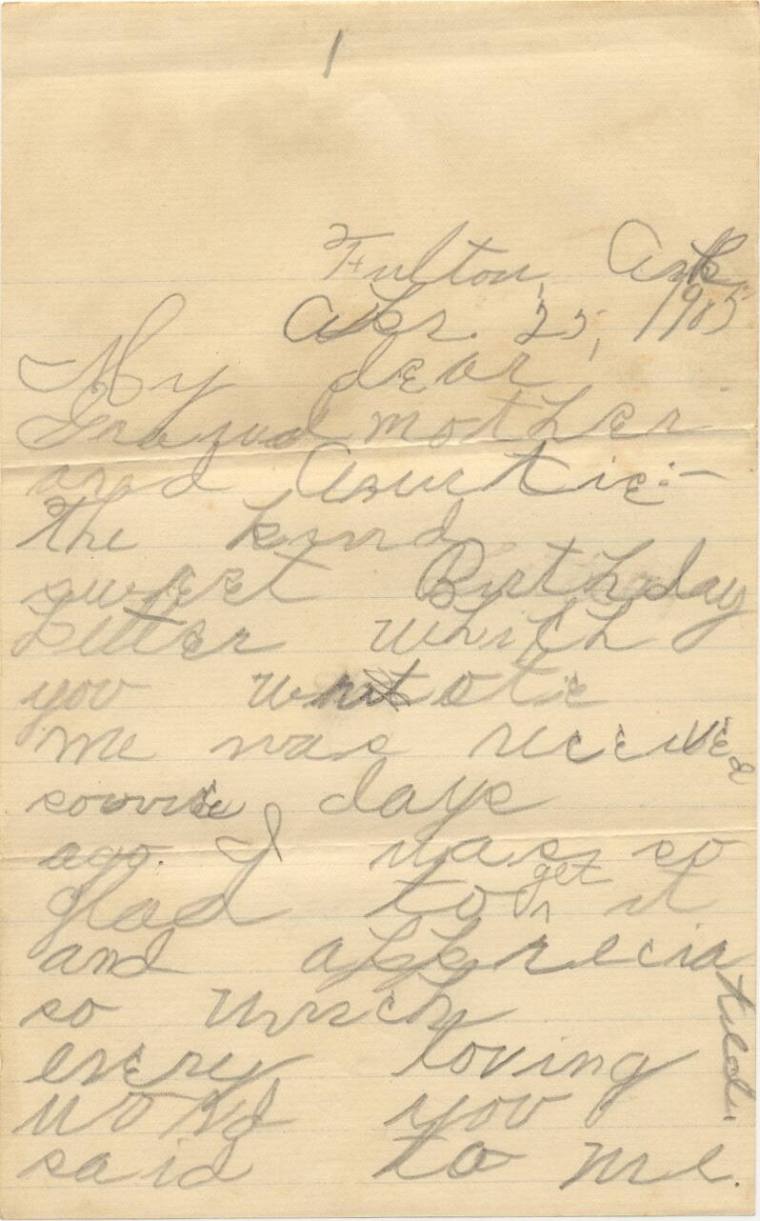 1
Fulton, Ark
Apr. 25, 1905
My dear
Grandmother
and Auntie:-
the kind
sweet Birthday
Letter which
you wrote
me was received
some days
ago. I was so
glad to get it
and appreciated
so much
every loving
word you
said to me.